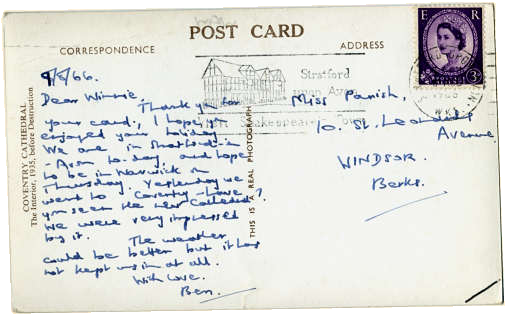 POST CARD
CORRESPONDENCE
ADDRESS
E R
3D
Stratford
upon Avon
Shakespeare's Town
9/8/66.
Dear Winnie,
Thank you for
your card, I hope you
enjoyed your holiday
We are in Stratford-
-Avon to-day, and hope
to be in Warwick on
Thursday. Yesterday we
went to Coventry - have
you seen the new Cathedral?
We were very impressed
by it. The weather
could be better but it has
not kept us in at all.
With Love.
Ben.
Miss Parish,
10. St. Leonards
Avenue
WINDSOR.
Berks.
COVENTRY CATHEDRAL
The Interior, 1935, before Destruction
THIS IS A REAL PHOTOGRAPH